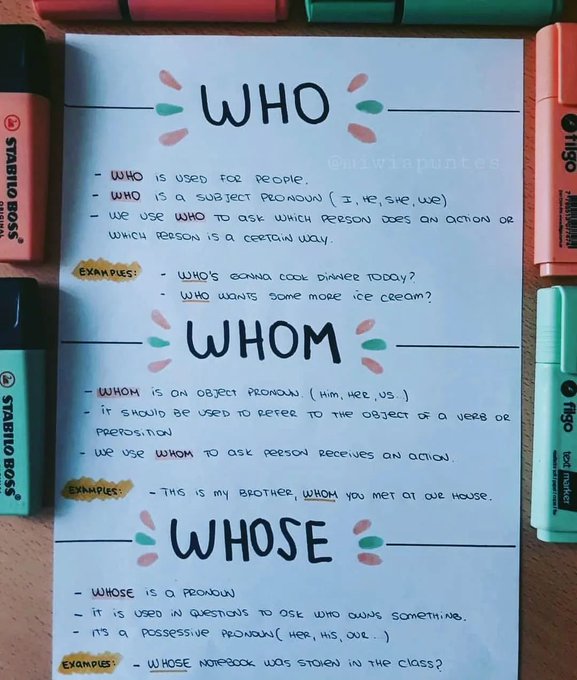 WHO
@miwiapuntes
- WHO IS USED FOR PEOPLE.
- WHO IS A SUBJECT PRONOUN ( I, HE, SHE, WE)
- WE USE WHO TO ASK WHICH PERSON DOES AN ACTION OR
WHICH PERSON IS A CERTAIN WAY.
EXAMPLES: - WHO'S GONNA COOK DINNER TODAY?
- WHO WANTS SOME MORE ICE CREAM?
WHOM
- WHOM IS AN OBJECT PRONOUN. ( HIM, HER, US..)
- IT SHOULD BE USED TO REFER TO THE OBJECT OF A VERB OR
PREPOSITION
- WE USE WHOM TO ASK PERSON RECEIVES AN ACTION.
EXAMPLES: - THIS IS MY BROTHER, WHOM YOU MET AT OUR HOUSE.
WHOSE
- WHOSE IS A PRONOUN
- IT IS USED IN QUESTIONS TO ASK WHO OWNS SOMETHING.
- IT'S A POSSESSIVE PRONOUN( HER, HIS, OUR...)
EXAMPLES: - WHOSE NOTEBOOK WAS STOLEN IN THE CLASS?
STABILO BOSS
ORIGINAL
STABILO BOSS
filgo
filgo
text marker